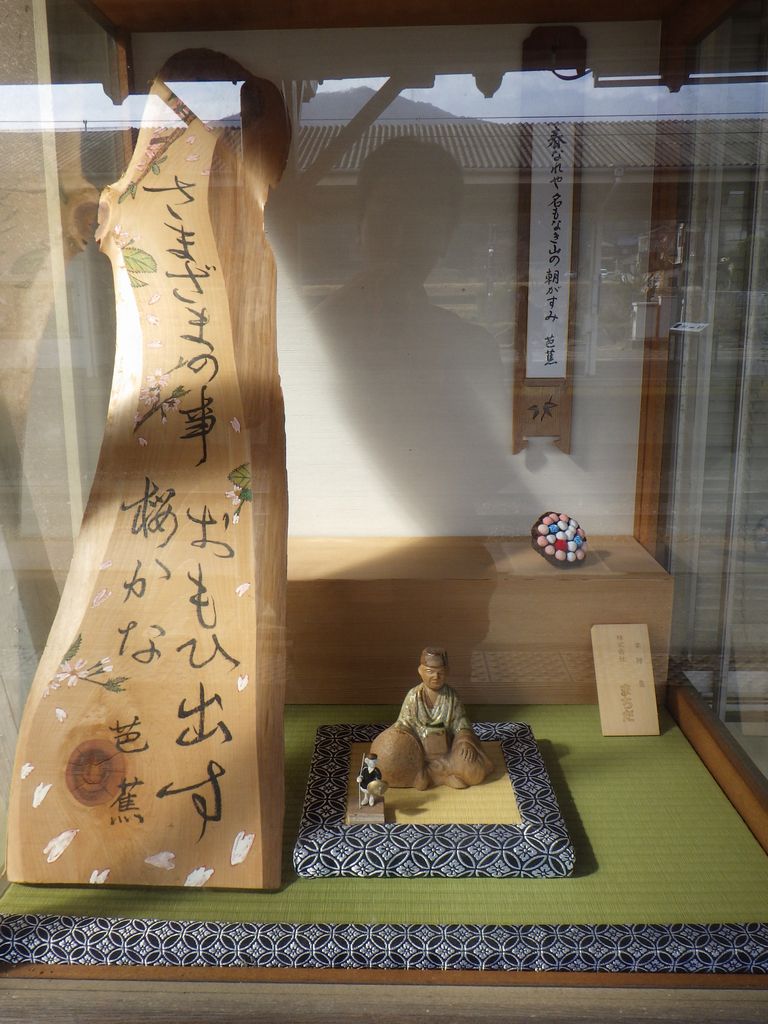 さまざまの事
おもひ出す
桜かな
芭蕉
春なれや 名もなき山の 朝がすみ 芭蕉
株式会社 まちだ